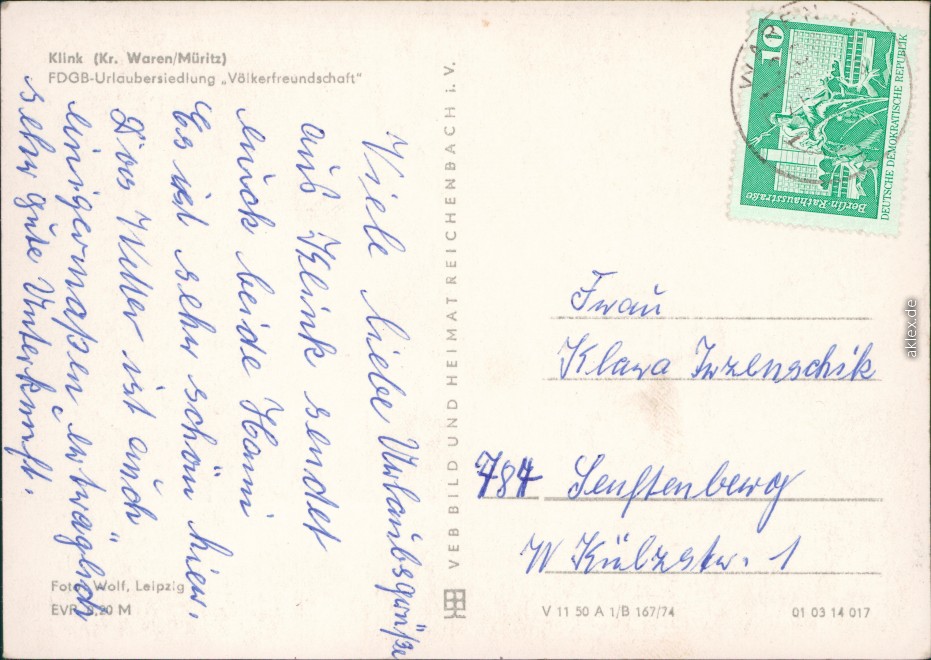 Klink (Kr. Waren/Müritz)
FDGB-Urlaubersiedlung „Völkerfreundschaft"
Viele liebe Urlaubsgrüße
aus Klink sendet
beide Hanni
Es ist sehr schön hier.
Das Wetter ist auch
einigermaßen erträglich
sehr gute Unterkunft.
Foto: Wolf, Leipzig
EVP 0,20 M
VEB BILD UND HEIMAT REICHENBACH i. V.
WAREN
10
Berlin-Rathausstraße
DEUTSCHE DEMOKRATISCHE REPUBLIK
Frau
Klara Irzenschik
784 Senftenberg
W Külzstr. 1
V 11 50 A 1/B 167/74
01 03 14 017
aklex.de